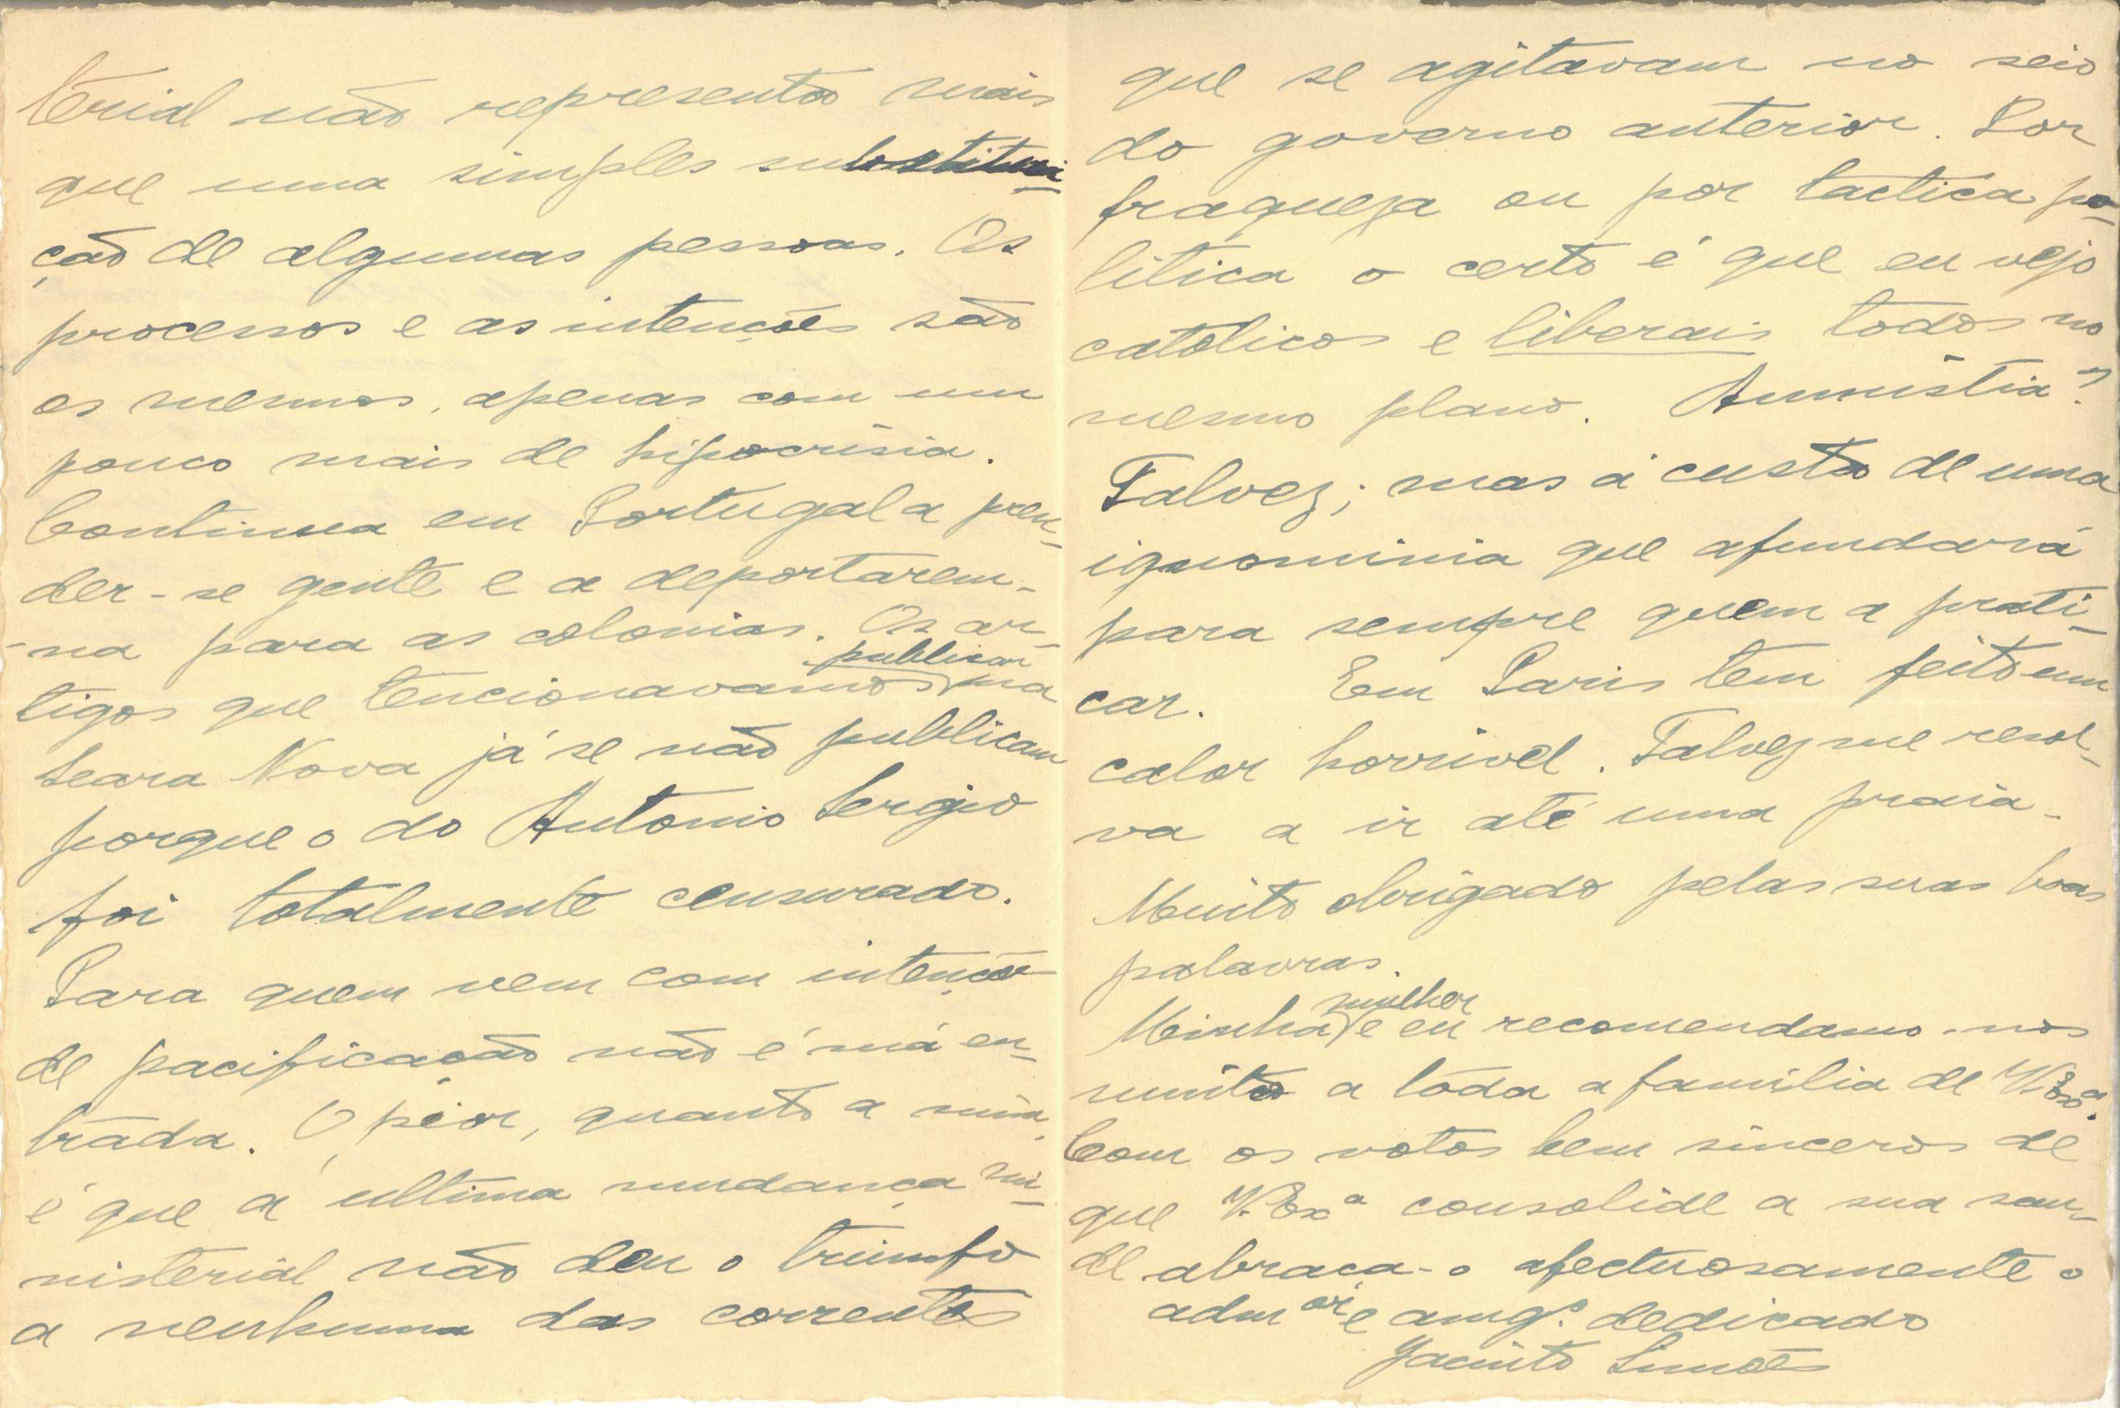 terial não representa mais
que uma simples substitui-
ção de algumas pessoas. Os
processos e as intenções são
os mesmos, apenas com um
pouco mais de hipocrisia.
Continua em Portugal a pren-
der-se gente e a deportarem-
-na para as colonias. Os ar-
tigos que tencionavamos publicar na
Seara Nova já se não publicam
porque o do Antonio Sergio
foi totalmente censurado.
Para quem vem com intenções
de pacificação não é má en-
trada. O peor, quanto a mim,
é que a ultima mudança mi-
nisterial não deu o triunfo
a nenhuma das correntes
que se agitavam no seio
do governo anterior. Por
fraqueza ou por tactica po-
litica o certo é que eu vejo
catolicos e liberais todos no
mesmo plano. Amnistia?
Talvez; mas á custa de uma
ignominia que afundará
para sempre quem a prati-
car. Em Paris tem feito um
calor horrivel. Talvez me resol-
va a ir até uma praia.
Muito obrigado pelas suas boas
palavras.
Minha mulher e eu recomendamo-nos
muito a toda a familia de V. Exª.
Com os votos bem sinceros de
que V. Exª consolide a sua sau-
de abraça-o afectuosamente o
admor e amgº. dedicado
Jacinto Simões